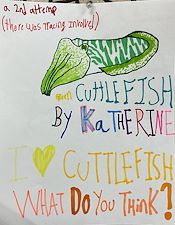 a 2nd attempt
(there was tracing involved)
CUTTLEFISH
BY KATHERINE
I ♥ CUTTLEFISH
WHAT DO YOU THINK?